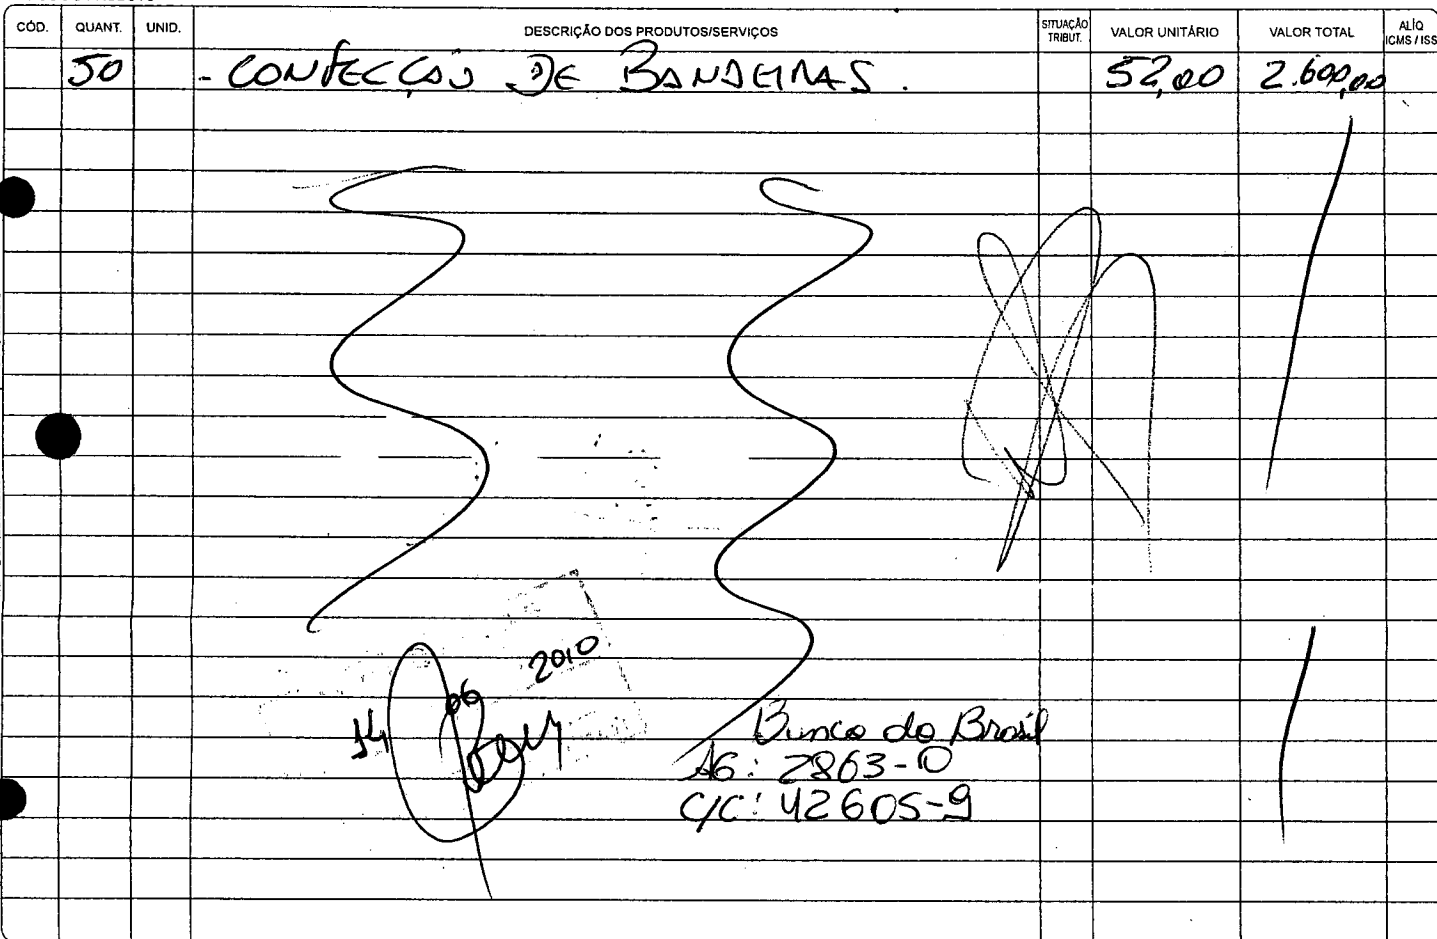 CÓD. QUANT. UNID. DESCRIÇÃO DOS PRODUTOS/SERVIÇOS SITUAÇÃO TRIBUT. VALOR UNITÁRIO VALOR TOTAL ALÍQ ICMS / ISS
50 - CONFECÇÃO DE BANDEIRAS. 52,00 2.600,00
14 06 2010
Banco do Brasil
AG: 2863-0
C/C: 42605-9